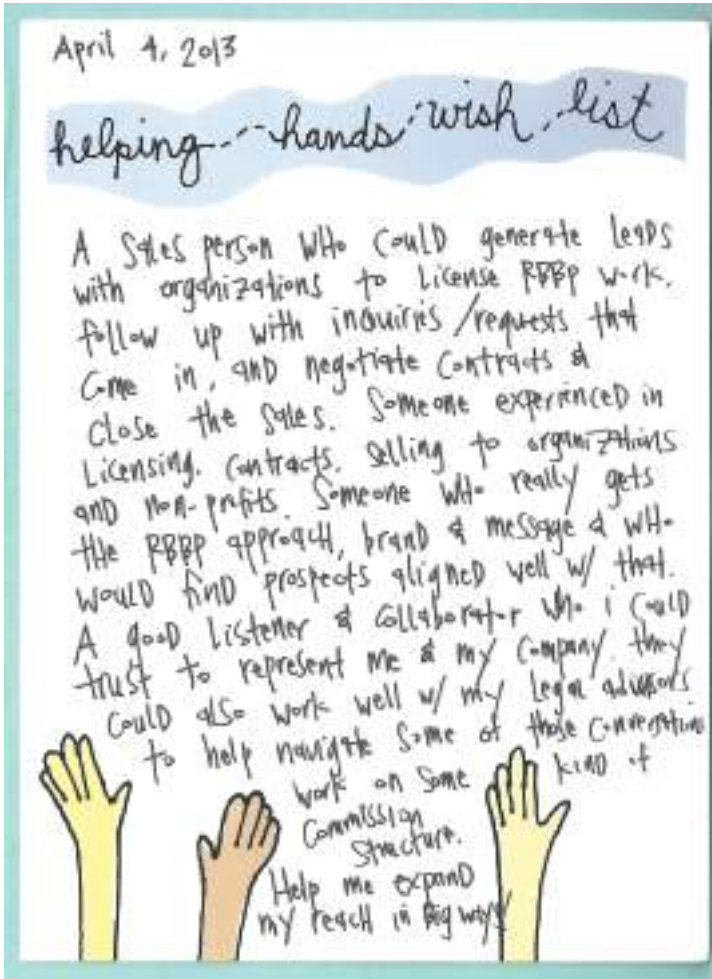 April 4, 2013
helping hands wish list
A sales person WHo could generate leads
with organizations to license RBBP work.
follow up with inquiries/requests that
come in, and negotiate contracts &
close the sales. Someone experienced in
licensing, contracts, selling to organizations
and non-profits. Someone who really gets
the RBBP approach, brand & message & who
would find prospects aligned well w/ that.
A good listener & collaborator who i could
trust to represent me & my company. they
could also work well w/ my legal advisors
to help navigate some of those conversations
work on some kind of
commission
structure.
Help me expand
my reach in Big ways!